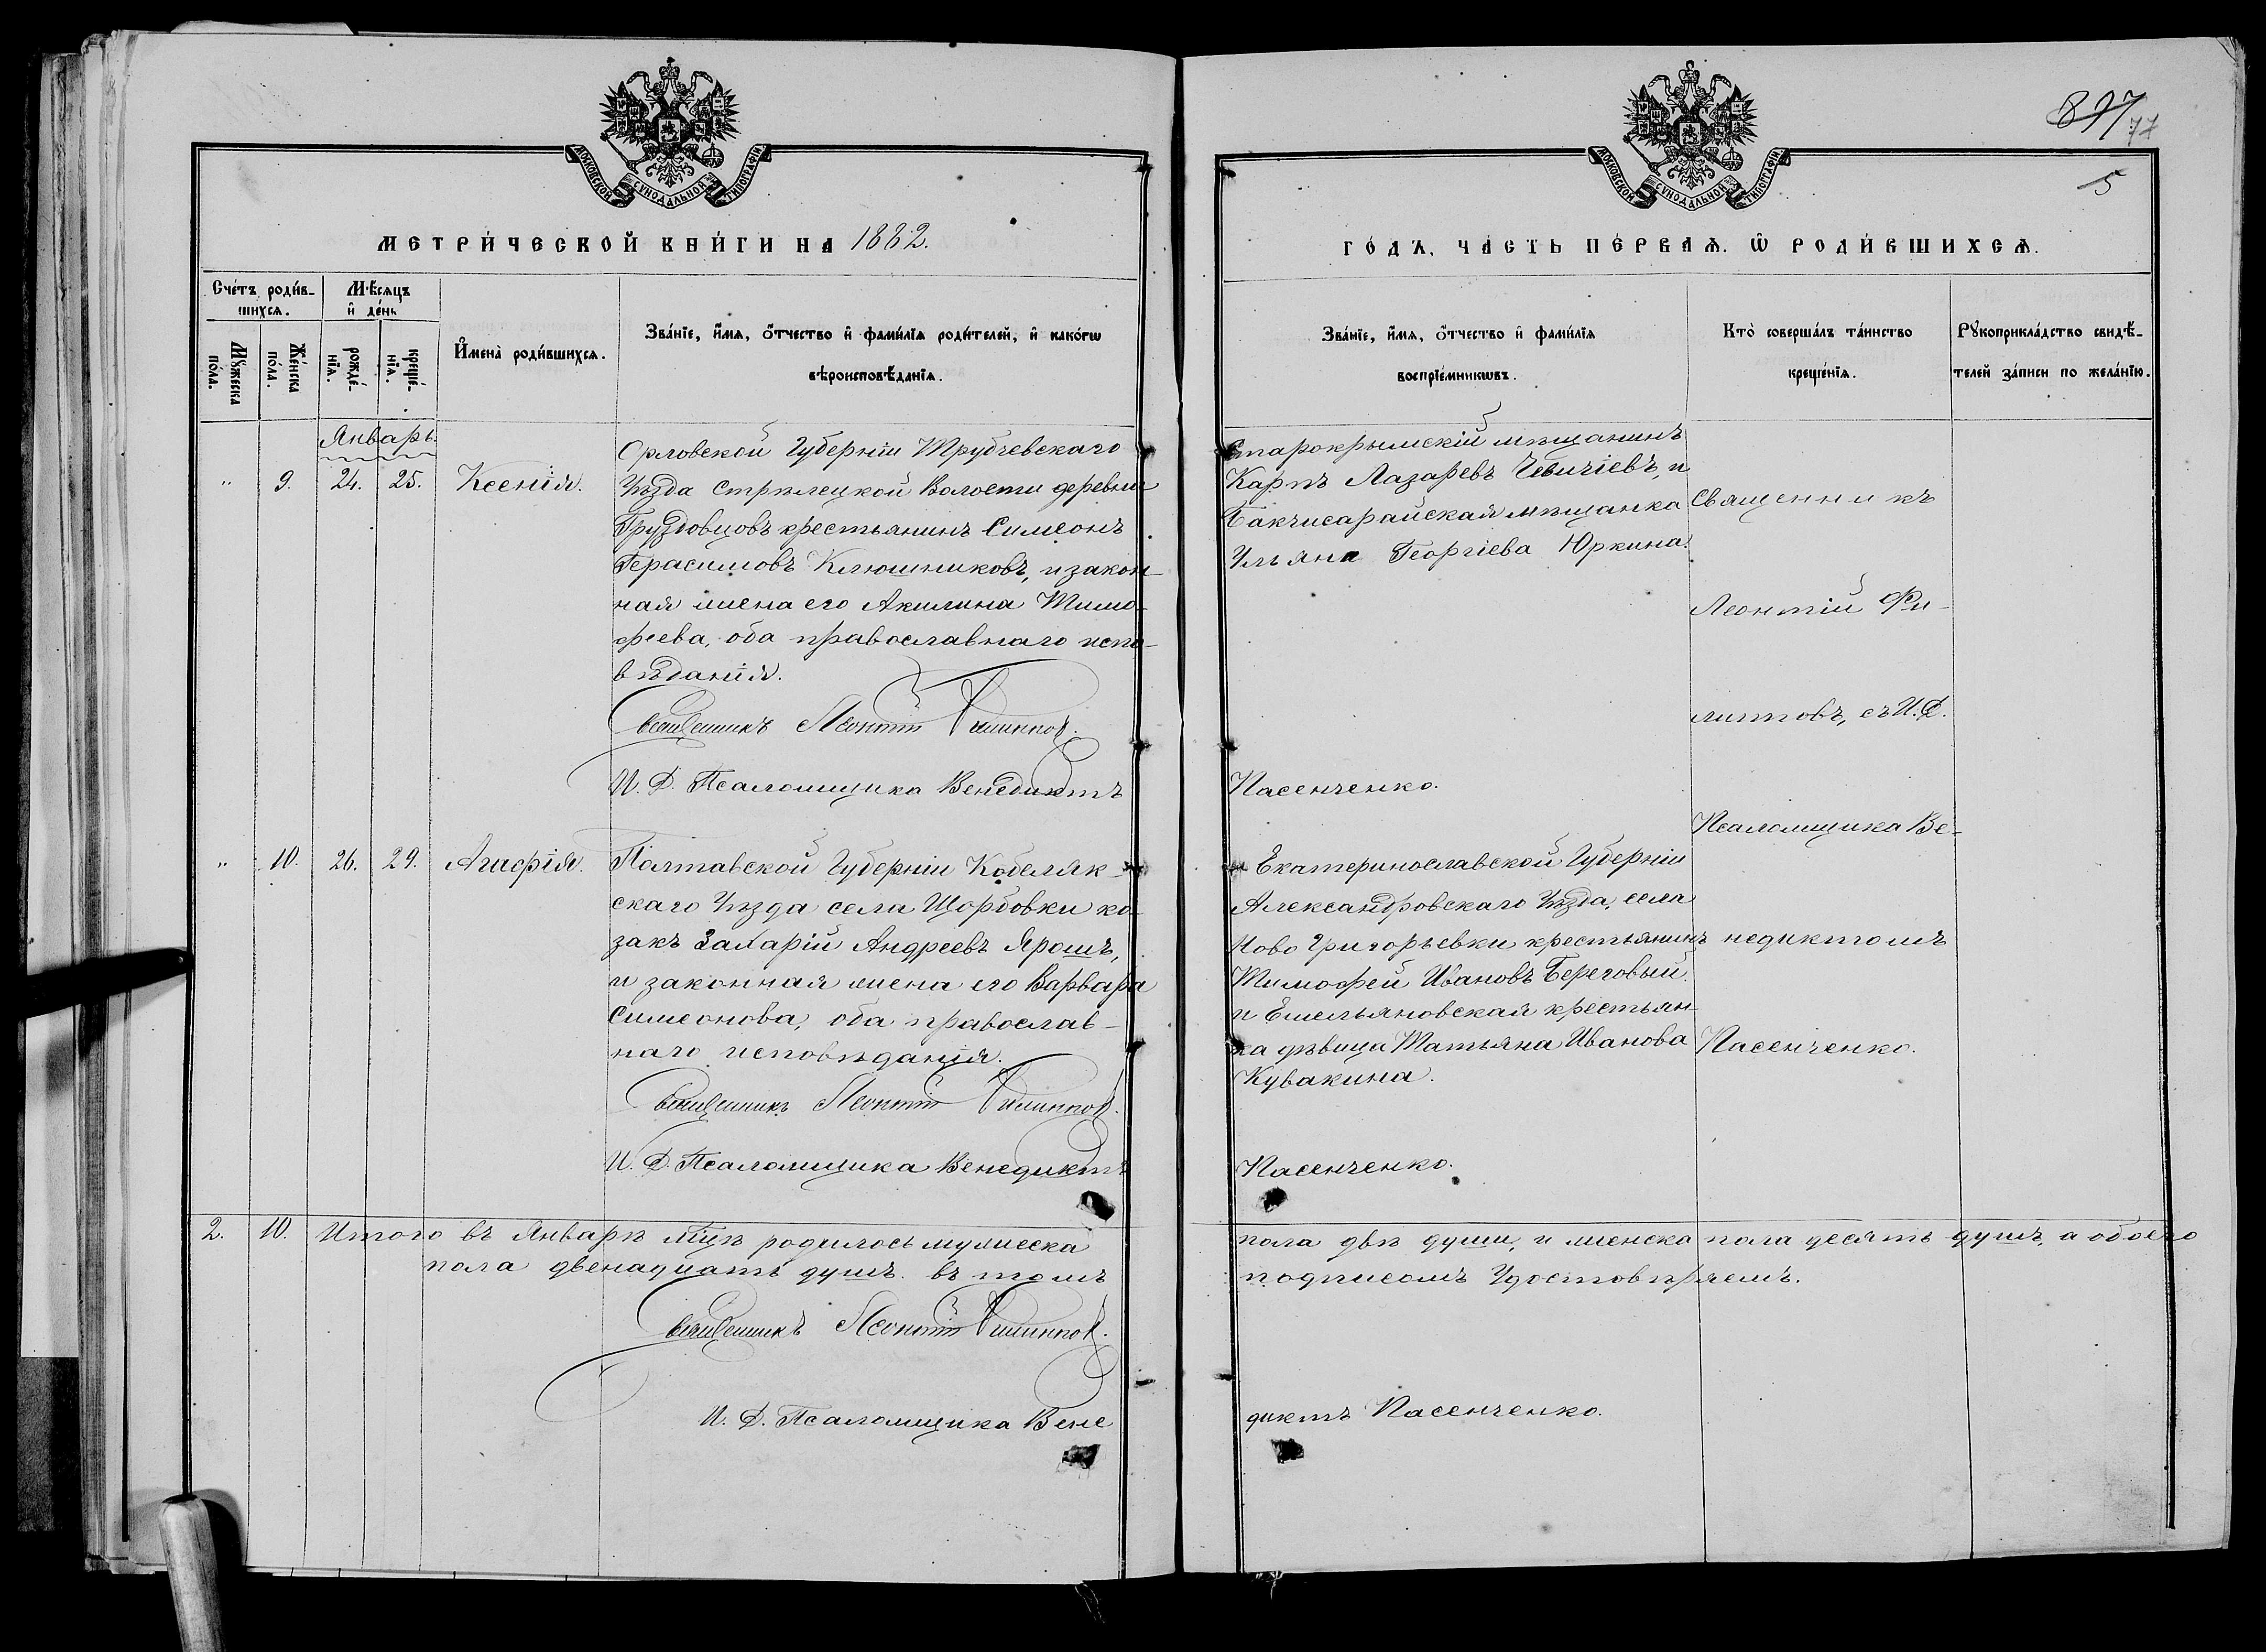 МОСКОВСКОЙ СУНОДАЛЬНОЙ ТИПОГРАФІИ
МЕТРИ́ЧЕСКОЙ КНИ́ГИ НА 1882.
Сче́тъ роди́в-
шихся.
Мѣ́сяцъ
и҆ де́нь
Мꙋ́жеска
по́ла.
Же́нска
по́ла.
рожде́-
нїя.
креще́-
нїя.
И҆мена̀ роди́вшихся.
Зва́нїе, и҆́мя, ѻ҆́тчество и҆ фами́лїя роди́телей, и҆ како́гѡ
вѣроисповѣ́данїя.
Январь.
" 9. 24. 25. Ксенія.
Орловской Губерніи Трубчевскаго
Уѣзда Стрѣлецкой Волости деревни
Груздовцовъ крестьянинъ Симеонъ
Герасимовъ Клюшниковъ, и закон-
ная жена его Акилина Тимо-
феева, оба православнаго испо-
вѣданія.
Священникъ Леонтій Филиппов.
И. Д. Псаломщика Венедиктъ
" 10. 26. 29. Агафія.
Полтавской Губерніи Кобеляк-
скаго Уѣзда села Щорбовки ко-
закъ Захарій Андреевъ Ярошъ,
и законная жена его Варвара
Симеонова, оба православ-
наго исповѣданія.
Священникъ Леонтій Филиппов.
И. Д. Псаломщика Венедиктъ
2. 10. Итого въ Январѣ мцѣ родилось мужеска
пола двенадцать душъ. въ томъ
Священникъ Леонтій Филиппов.
И. Д. Псаломщика Вене
897
77
5
МОСКОВСКОЙ СУНОДАЛЬНОЙ ТИПОГРАФІИ
ГО́ДЪ, ЧА́СТЬ ПЕ́РВАЯ. Ѽ РОДИ́ВШИХСЯ.
Зва́нїе, и҆́мя, ѻ҆́тчество и҆ фами́лїя
воспрїе́мникѡвъ.
Кто̀ соверша́лъ та́инство
креще́нїя.
Рꙋкоприкла́дство свидѣ́-
телей за́писи по жела́нїю.
Старокрымскій мѣщанинъ
Карпъ Лазаревъ Чебичіевъ, и
Бакчисарайская мѣщанка
Ульяна Георгіева Юркина.
Пасенченко.
Екатеринославской Губерніи
Александровскаго Уѣзда, села
Ново Григорьевки крестьянинъ
Тимофей Ивановъ Береговый.
и Емельяновская крестьян-
ка дѣвица Татьяна Иванова
Кувакина.
Пасенченко.
Священникъ
Леонтій Фи-
липповъ, съ И. Д.
Псаломщика Ве-
недиктомъ
Пасенченко.
пола двѣ души, и женска пола десять душъ, а обоего
подписомъ Удостовѣряемъ.
диктъ Пасенченко.